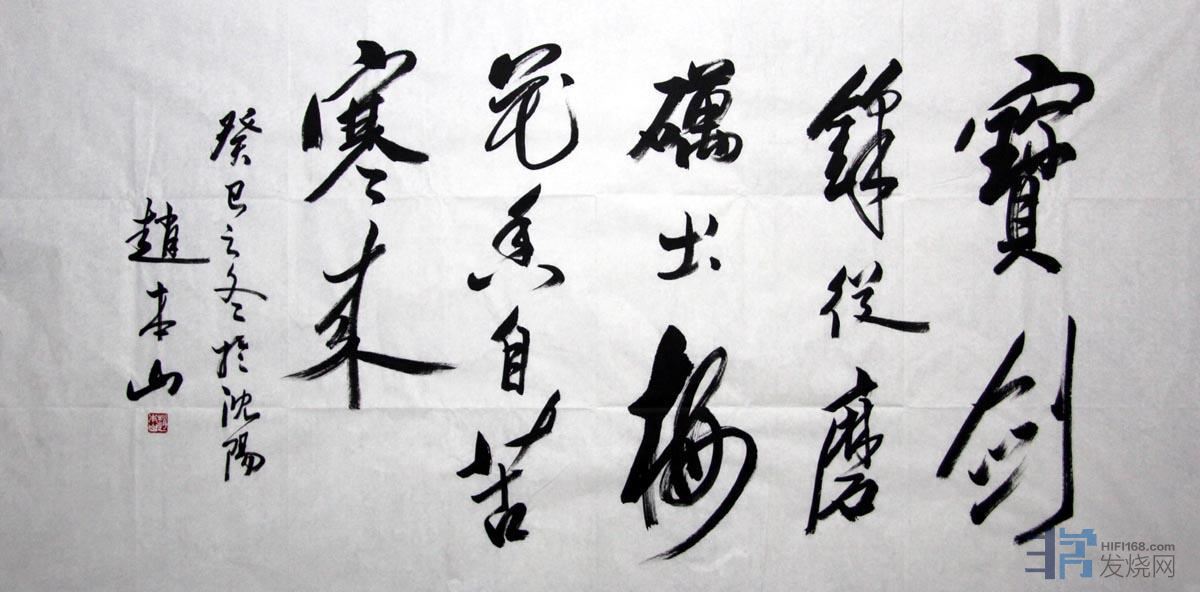 寶劍
鋒從磨
礪出梅
花香自苦
寒來
癸巳之冬於沈陽
趙本山
HIFI168.com
发烧网